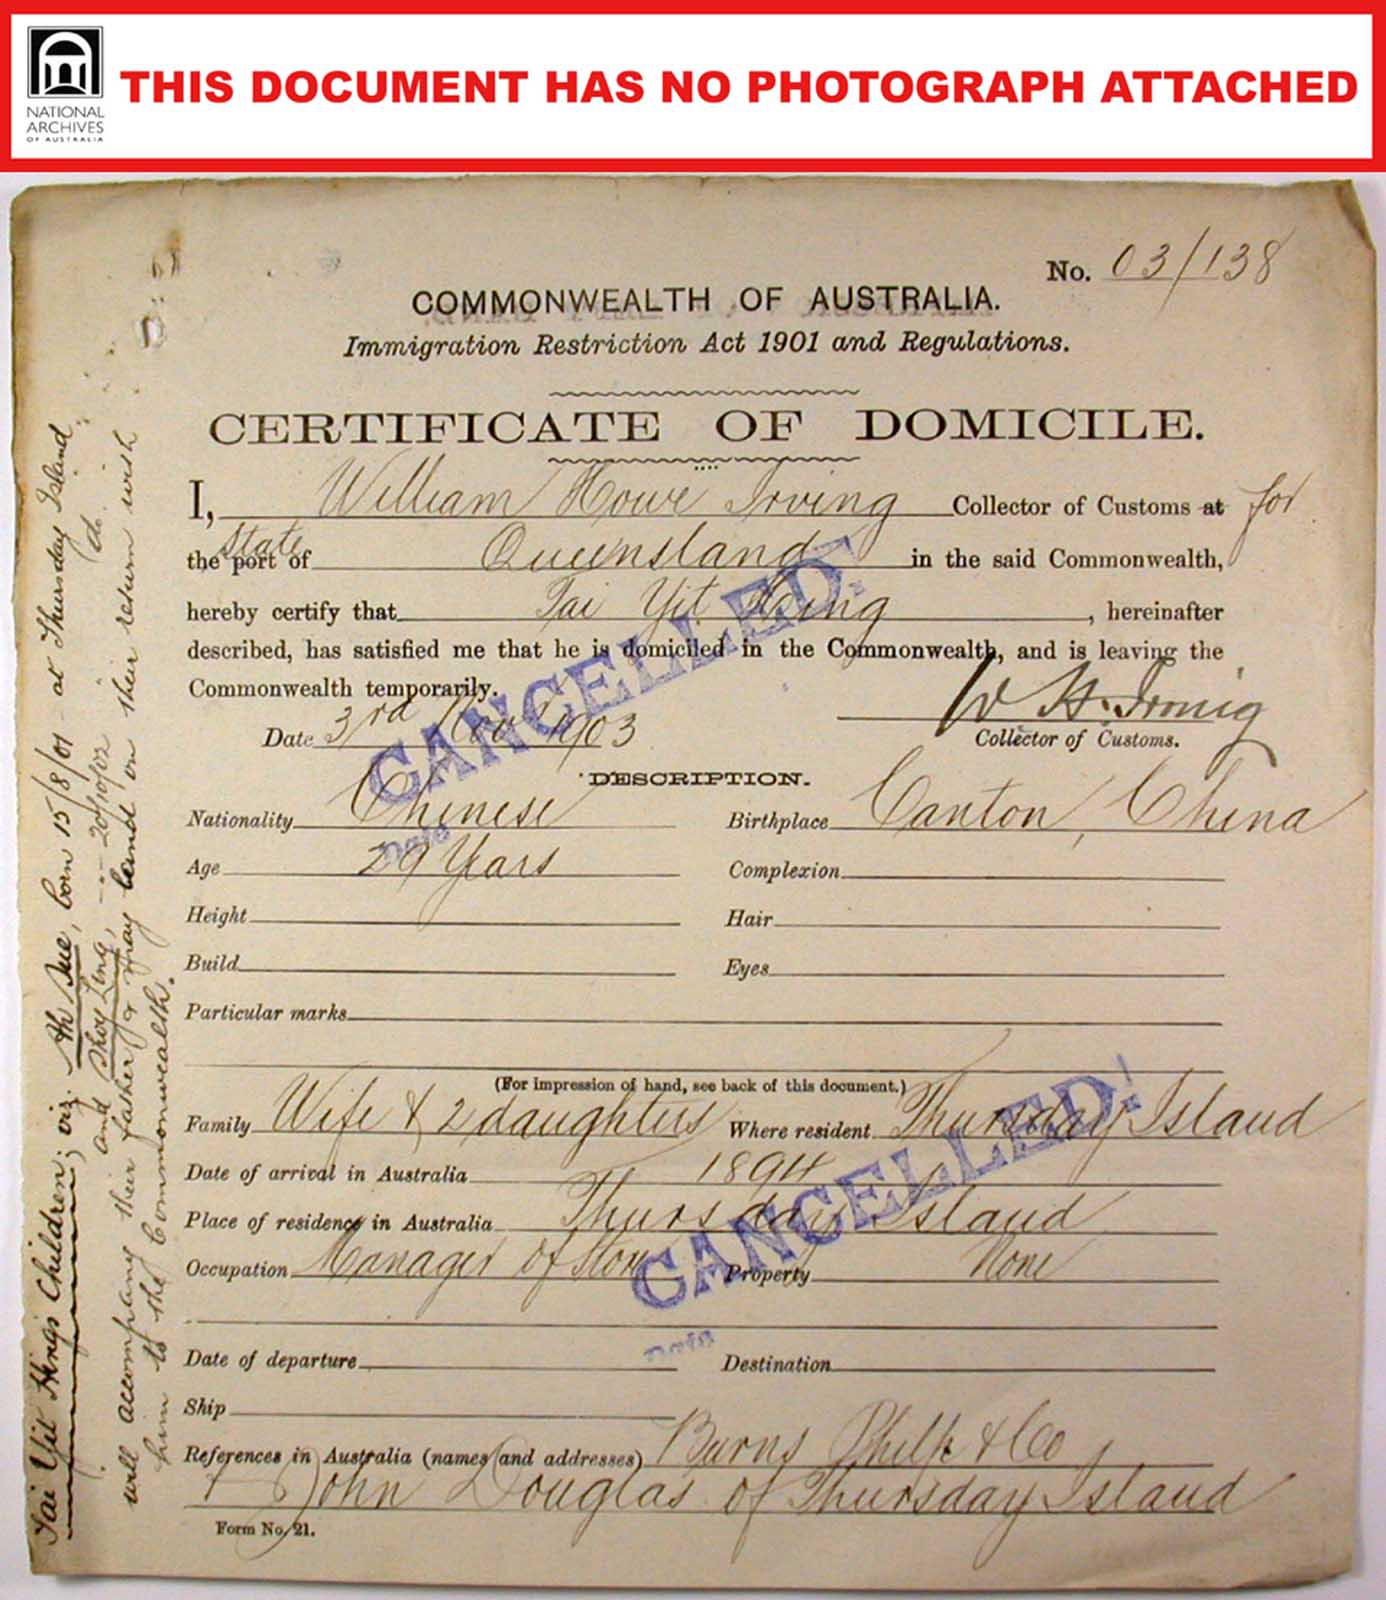 NATIONAL
ARCHIVES
OF AUSTRALIA
THIS DOCUMENT HAS NO PHOTOGRAPH ATTACHED
No. 03/138
COMMONWEALTH OF AUSTRALIA.
Immigration Restriction Act 1901 and Regulations.
CERTIFICATE OF DOMICILE.
I, William Howe Irving Collector of Customs at for
State
the port of Queensland in the said Commonwealth,
hereby certify that Tai Yit Hing, hereinafter
described, has satisfied me that he is domiciled in the Commonwealth, and is leaving the
Commonwealth temporarily.
Date 3rd Nov 1903
W H Irving
Collector of Customs.
CANCELLED.
Date
DESCRIPTION.
Nationality Chinese Birthplace Canton, China
Age 29 Years Complexion
Height Hair
Build Eyes
Particular marks
(For impression of hand, see back of this document.)
Family Wife & 2 daughters Where resident Thursday Island
Date of arrival in Australia 1894
Place of residence in Australia Thursday Island
Occupation Manager of Store Property None
CANCELLED.
Date
Date of departure Destination
Ship
References in Australia (names and addresses) Burns Philp & Co
John Douglas of Thursday Island
Form No. 21.
Tai Yit Hing's Children; viz. Ah Sue, born 15/8/01 at Thursday Island
and Shoy Ling, --- 20/10/02 do.
will accompany their father & may land on their return with
him to the Commonwealth.